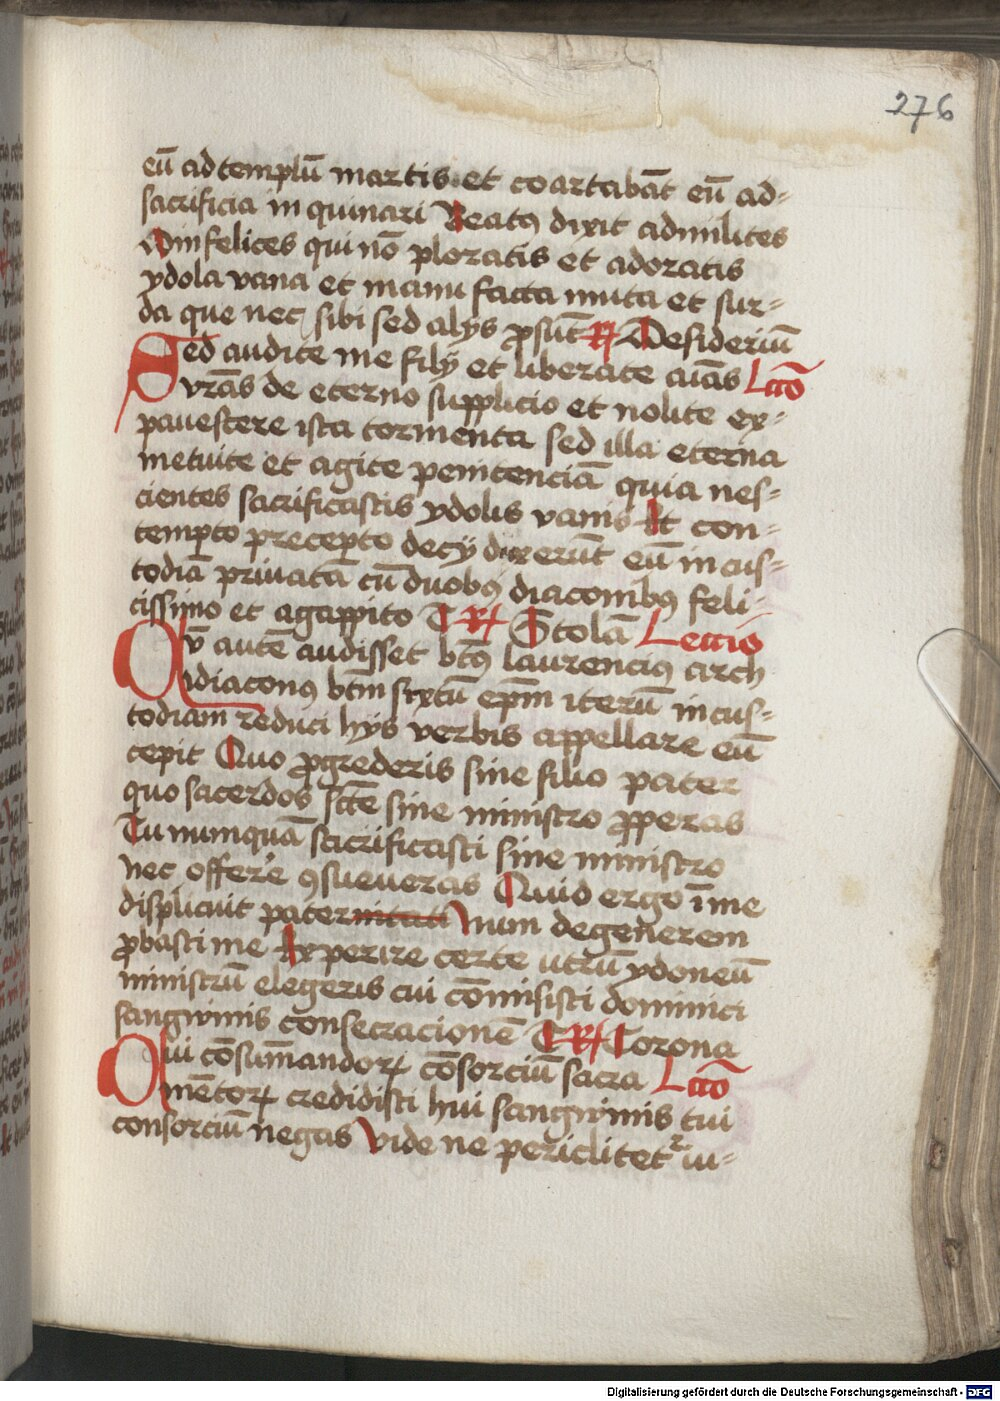 276
eū ad templū martis et coartabāt eū ad-
sacrificia in quinari Beatꝯ dixit ad milites
O infelices qui nō ploratis et adoratis
ydola vana et manu facta muta et sur-
da que nec sibi sed alÿs ꝓsūt ℟ Desideriū
Sed audite me filÿ et liberate aīas Lctō
vrās de eterno supplicio et nolite ex-
pauescere ista tormenta sed illa eterna
metuite et agite penitenciā quia nes-
cientes sacrificastis ydolis vanis Et con-
tempto precepto decÿ duxerūt eū in cus-
todiā priuatā cū duobꝯ diaconibꝯ feli-
cissimo et agappito T ℟ Stolā Lectio
Qū autē audisset btꝯ laurenciꝯ arch
idiaconꝯ btm̄ sixtū ep̄m iterū in cus-
todiam reduci hÿs verbis appellare eū
cepit Quo ꝓgrederis sine filio pater
quo sacerdos sctē sine ministro ꝓperas
Tu numquā sacrificasti sine ministro
nec offerre ꝯsueueras Quid ergo ī me
displicuit paternitati Num degenerem
ꝓbasti me Experire certe utrū ydoneū
ministrū elegeris cui cōmisisti dominici
sangwinis consecracionē T ℟ Corona
Qui cōsumandoꝝ cōsorciū sacra Lctō
mētoꝝ credidisti hui sangwinis tui
consorciū negas Vide ne periclitetᷣ iu-
Digitalisierung gefördert durch die Deutsche Forschungsgemeinschaft - DFG